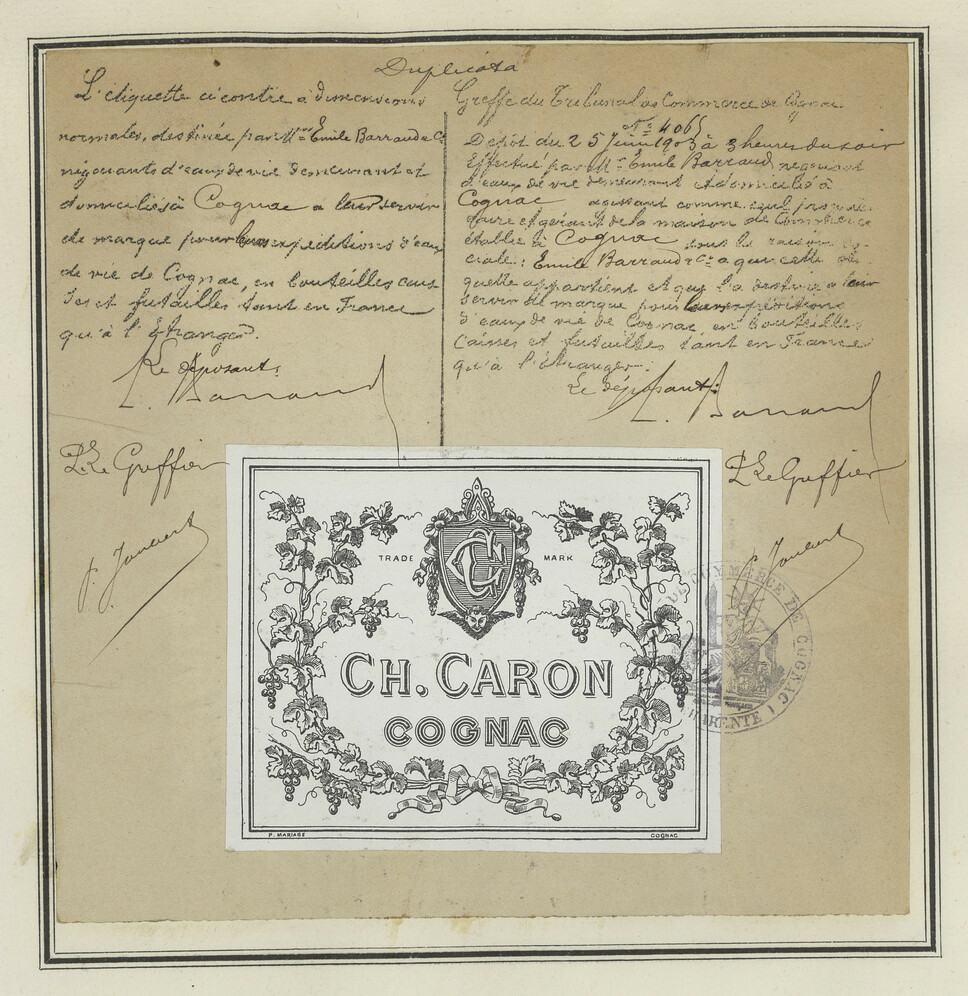 Duplicata
L'étiquette ci contre à dimensions
normales, destinée par Mrs Emile Barraud & Cie
négociants d'eaux de vie demeurant et
domiciliés à Cognac à leur servir
de marque pour leurs expéditions d'eaux
de vie de Cognac, en bouteilles cais
ses et futailles tant en France
qu'à l'étranger.
Le déposant:
E. Barraud
P. Le Greffier
Greffe du Tribunal de Commerce de Cognac
No 4065
Dépôt du 25 Juin 1903 à 3 heures du soir
Effectué par Mr Emile Barraud négociant
d'eaux de vie demeurant et domicilié à
Cognac agissant comme seul
et gérant de la maison de Commerce
établie à Cognac sous la raison so-
ciale: Emile Barraud & Cie à qui cette éti
quette appartient et qui l'a destine à leur
servir de marque pour leurs expéditions
d'eaux de vie de Cognac, en bouteilles
caisses et futailles tant en France
qu'à l'étranger.
Le déposant:
E. Barraud
P. Le Greffier
TRADE MARK
CC
CH. CARON
COGNAC
P. MARIAGE
COGNAC
DE COMMERCE DE COGNAC
CHARENTE